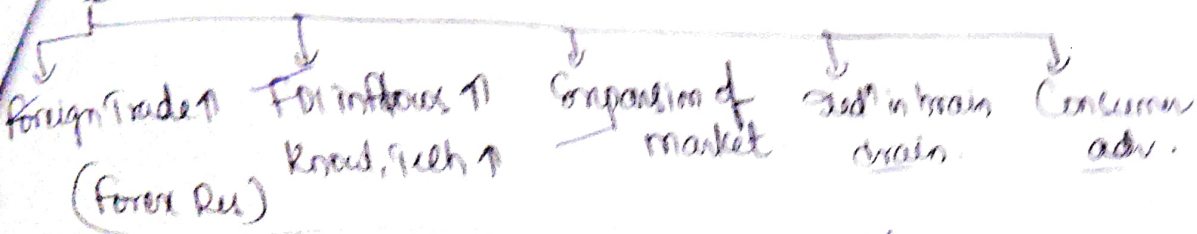 Foreign Trade ↑
(Forex Res)
FDI inflows ↑
Know, Tech ↑
Expansion of
market
Redⁿ in brain
drain.
Consumer
adv.